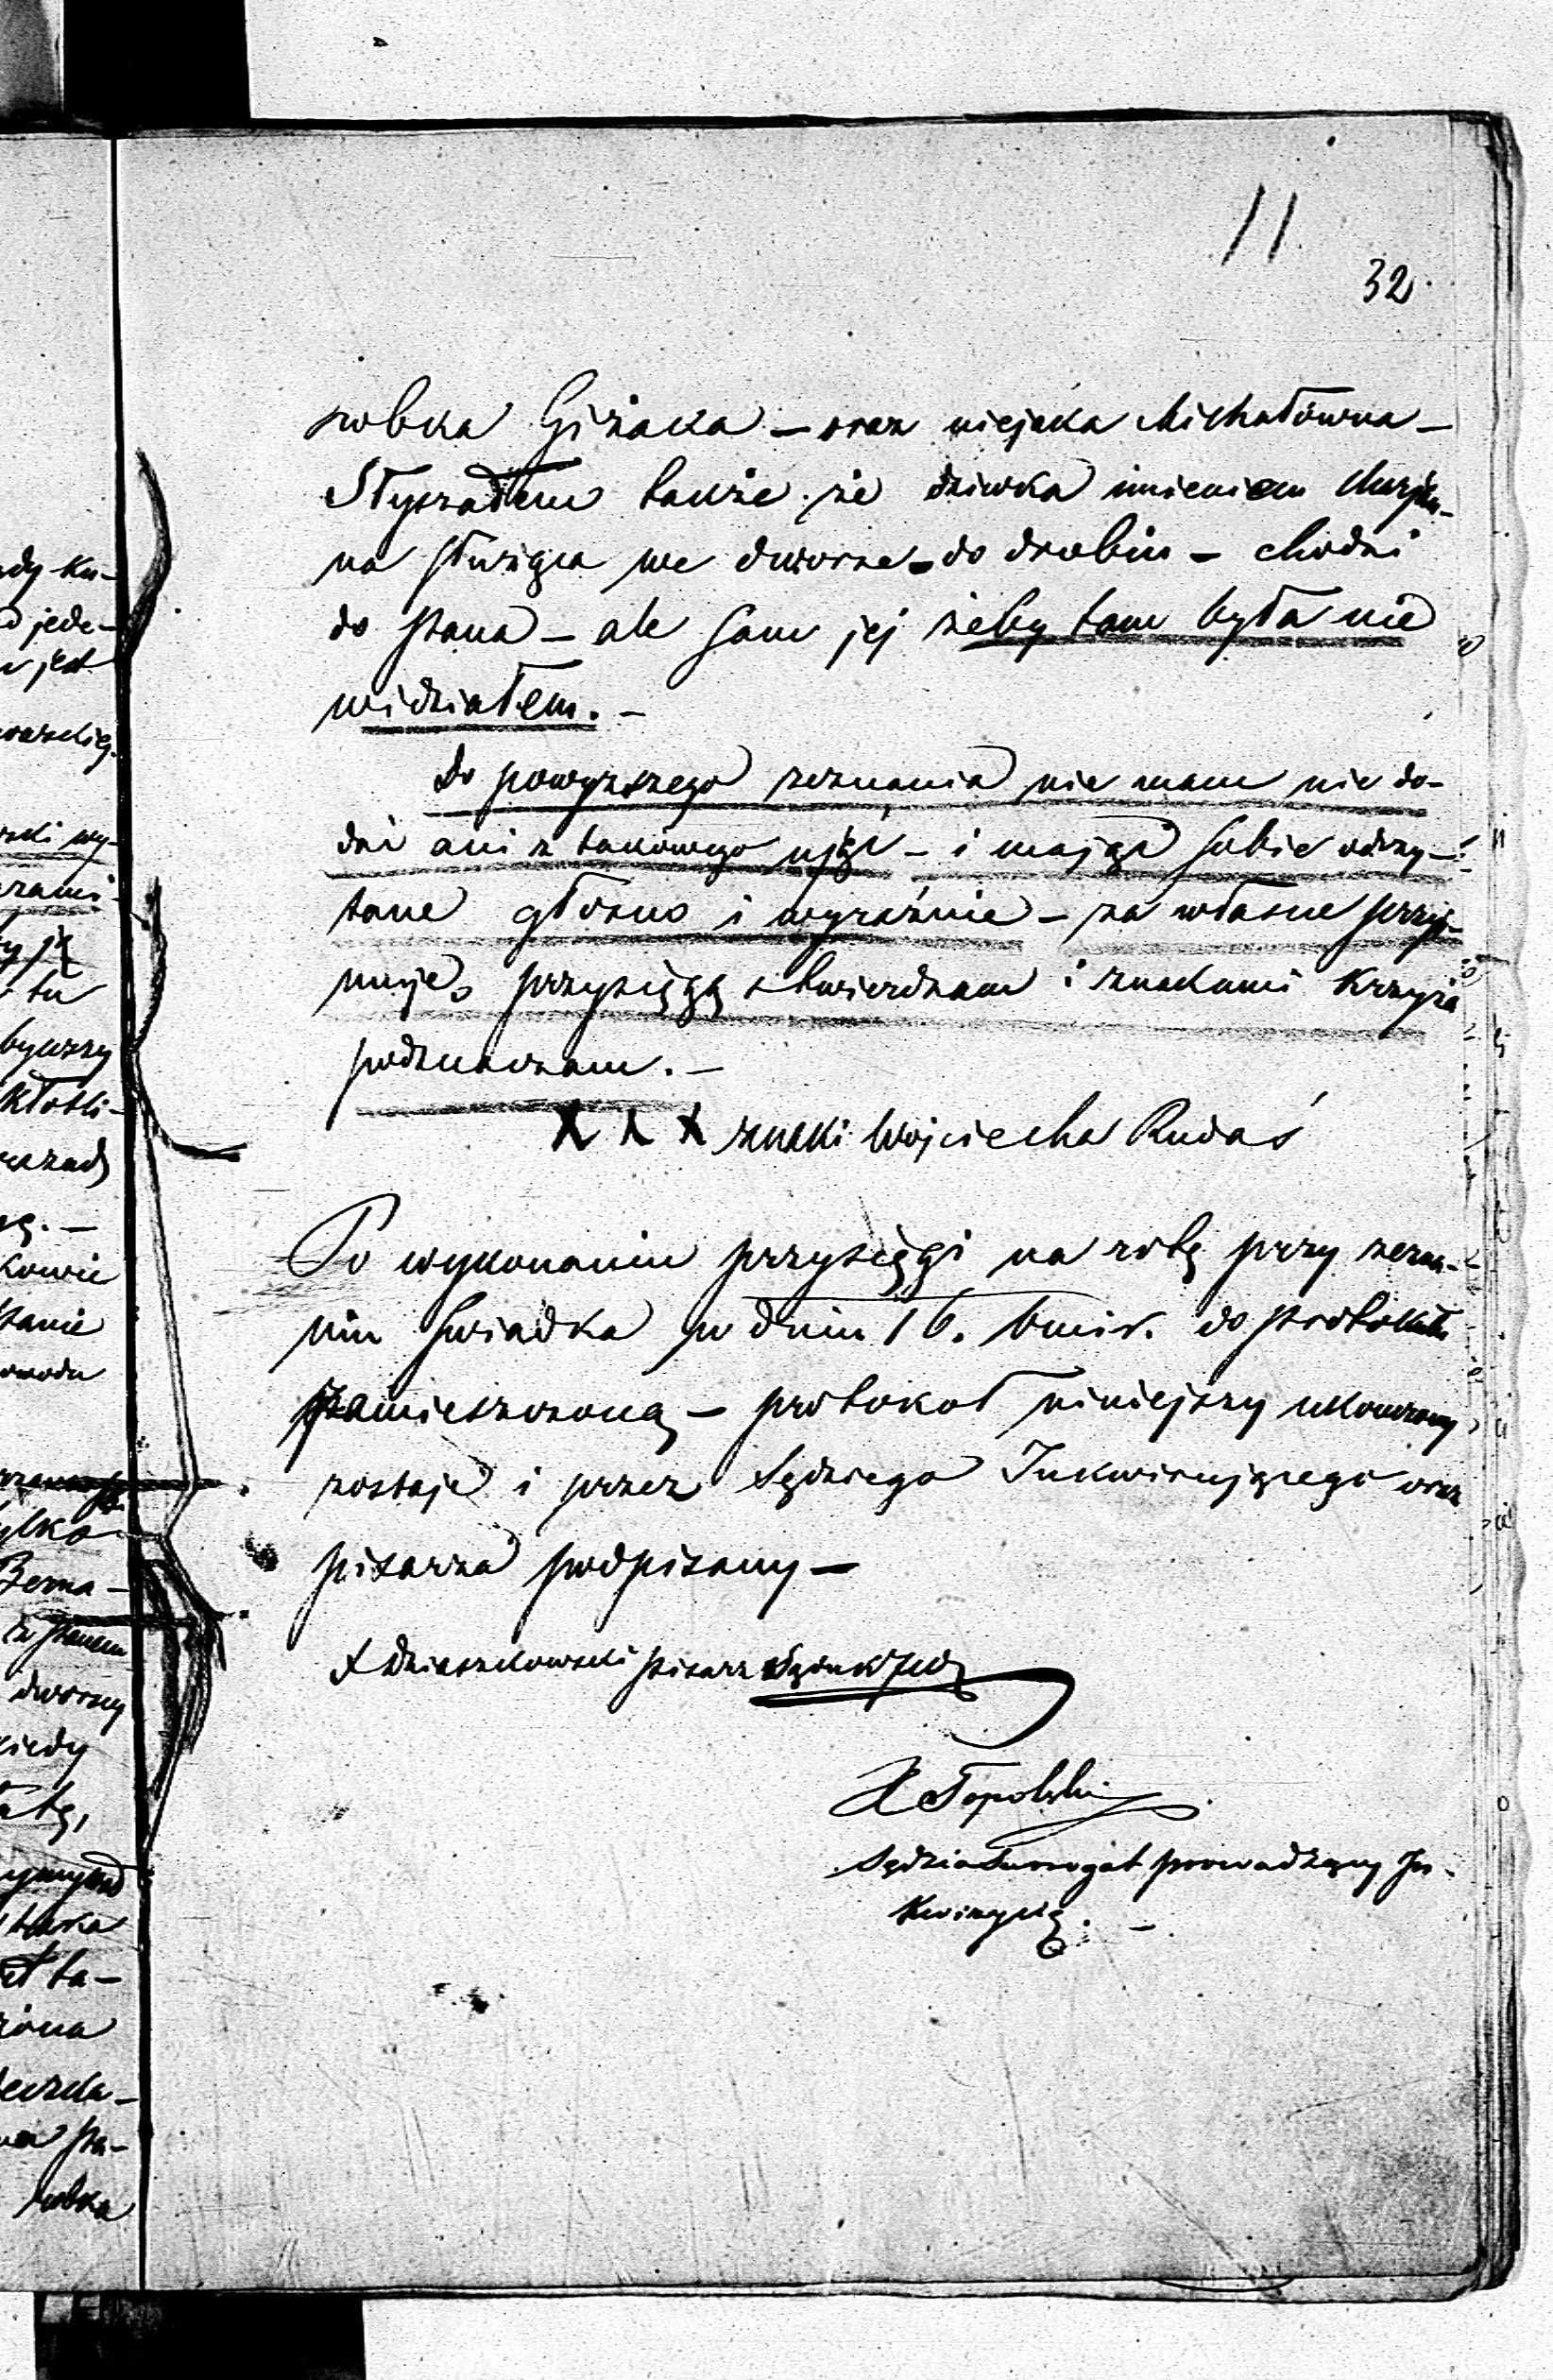 11
32.
robka Giżaka – oraz niejaka Michałowna –
Słyszałem także że dziwka imieniem Maryan-
na służąca we dworze – do drobiu – chodzi
do pana – ale sam jej żeby tam była nie
widziałem. –
Do powyższego zeznania nie mam nic do-
dać ani z takowego ująć – i mając sobie odczy-
tane głośno i wyraźnie – za własne przyj-
muję, przysięgą stwierdzam i znakami krzyża
podznaczam. –
X X X znaki Wojciecha Rudaś
Po wykonaniu przysięgi na rotę przy zezna-
niu świadka w dniu 16. bmir. do protokułu
zamieszczoną – protokoł niniejszy ukończony
zostaje i przez Sędziego Inkwirującego oraz
pisarza podpisany –
X Dzieszkowski pisarz
X Topolski
Sędzia Surrogat prowadzący In-
kwizycię. –
ady ku-
jede-
jest
ją
tu
kiedy
taka
robka